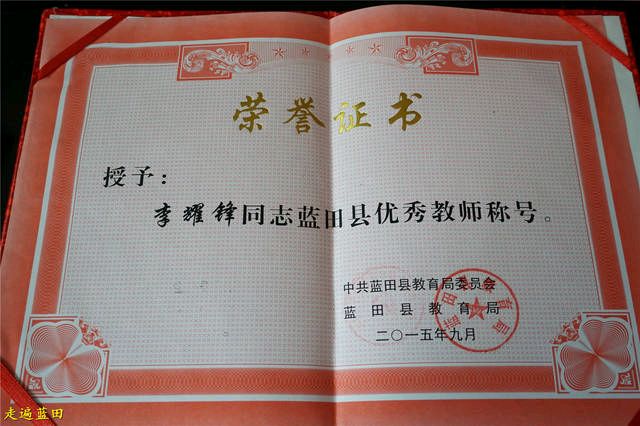 荣誉证书
授予：
李耀锋同志蓝田县优秀教师称号。
中共蓝田县教育局委员会
蓝田县教育局
二〇一五年九月
蓝田县教育局
走遍蓝田